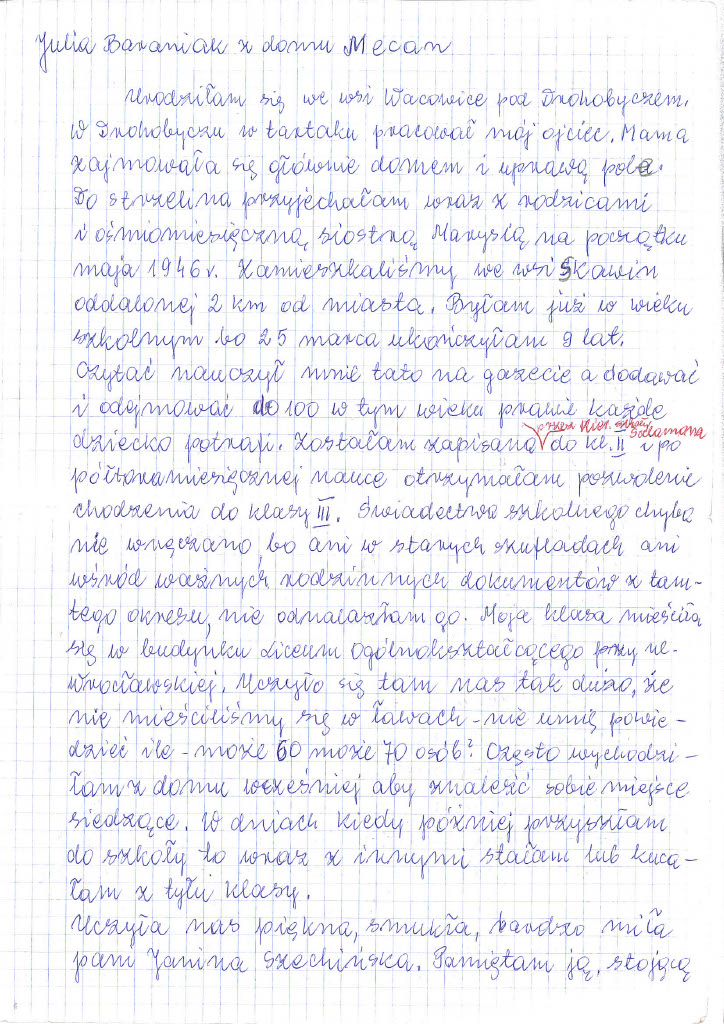 Julia Baraniak z domu Mecan
Urodziłam się we wsi Wacowice pod Drohobyczem.
W Drohobyczu w tartaku pracował mój ojciec. Mama
zajmowała się głównie domem i uprawą pola.
Do Strzelina przyjechałam wraz z rodzicami
i ośmiomiesięczną siostrą Marysią na początku
maja 1946 r. Zamieszkaliśmy we wsi Skawin
oddalonej 2 km od miasta. Byłam już w wieku
szkolnym bo 25 marca ukończyłam 9 lat.
Czytać nauczył mnie tato na gazecie a dodawać
i odejmować do 100 w tym wieku prawie każde
przez kier. szkoły
Salamona
dziecko potrafi. Zostałam zapisana do kl. II i po
półtoramiesięcznej nauce otrzymałam pozwolenie
chodzenia do klasy III. Świadectwa szkolnego chyba
nie wręczano, bo ani w starych szufladach ani
wśród ważnych rodzinnych dokumentów z tam-
tego okresu, nie odnalazłam go. Moja klasa mieściła
się w budynku Liceum Ogólnokształcącego przy ul.
Wrocławskiej. Uczyło się tam nas tak dużo, że
nie mieściliśmy się w ławach - nie umię powie-
dzieć ile - może 60 może 70 osób? Często wychodzi-
łam z domu wcześniej aby znaleść sobie miejsce
siedzące. W dniach kiedy później przyszłam
do szkoły to wraz z innymi stałam lub kuca-
łam z tyłu klasy.
Uczyła nas piękna, smukła, bardzo miła
pani Janina Szechińska. Pamiętam ją, stojącą